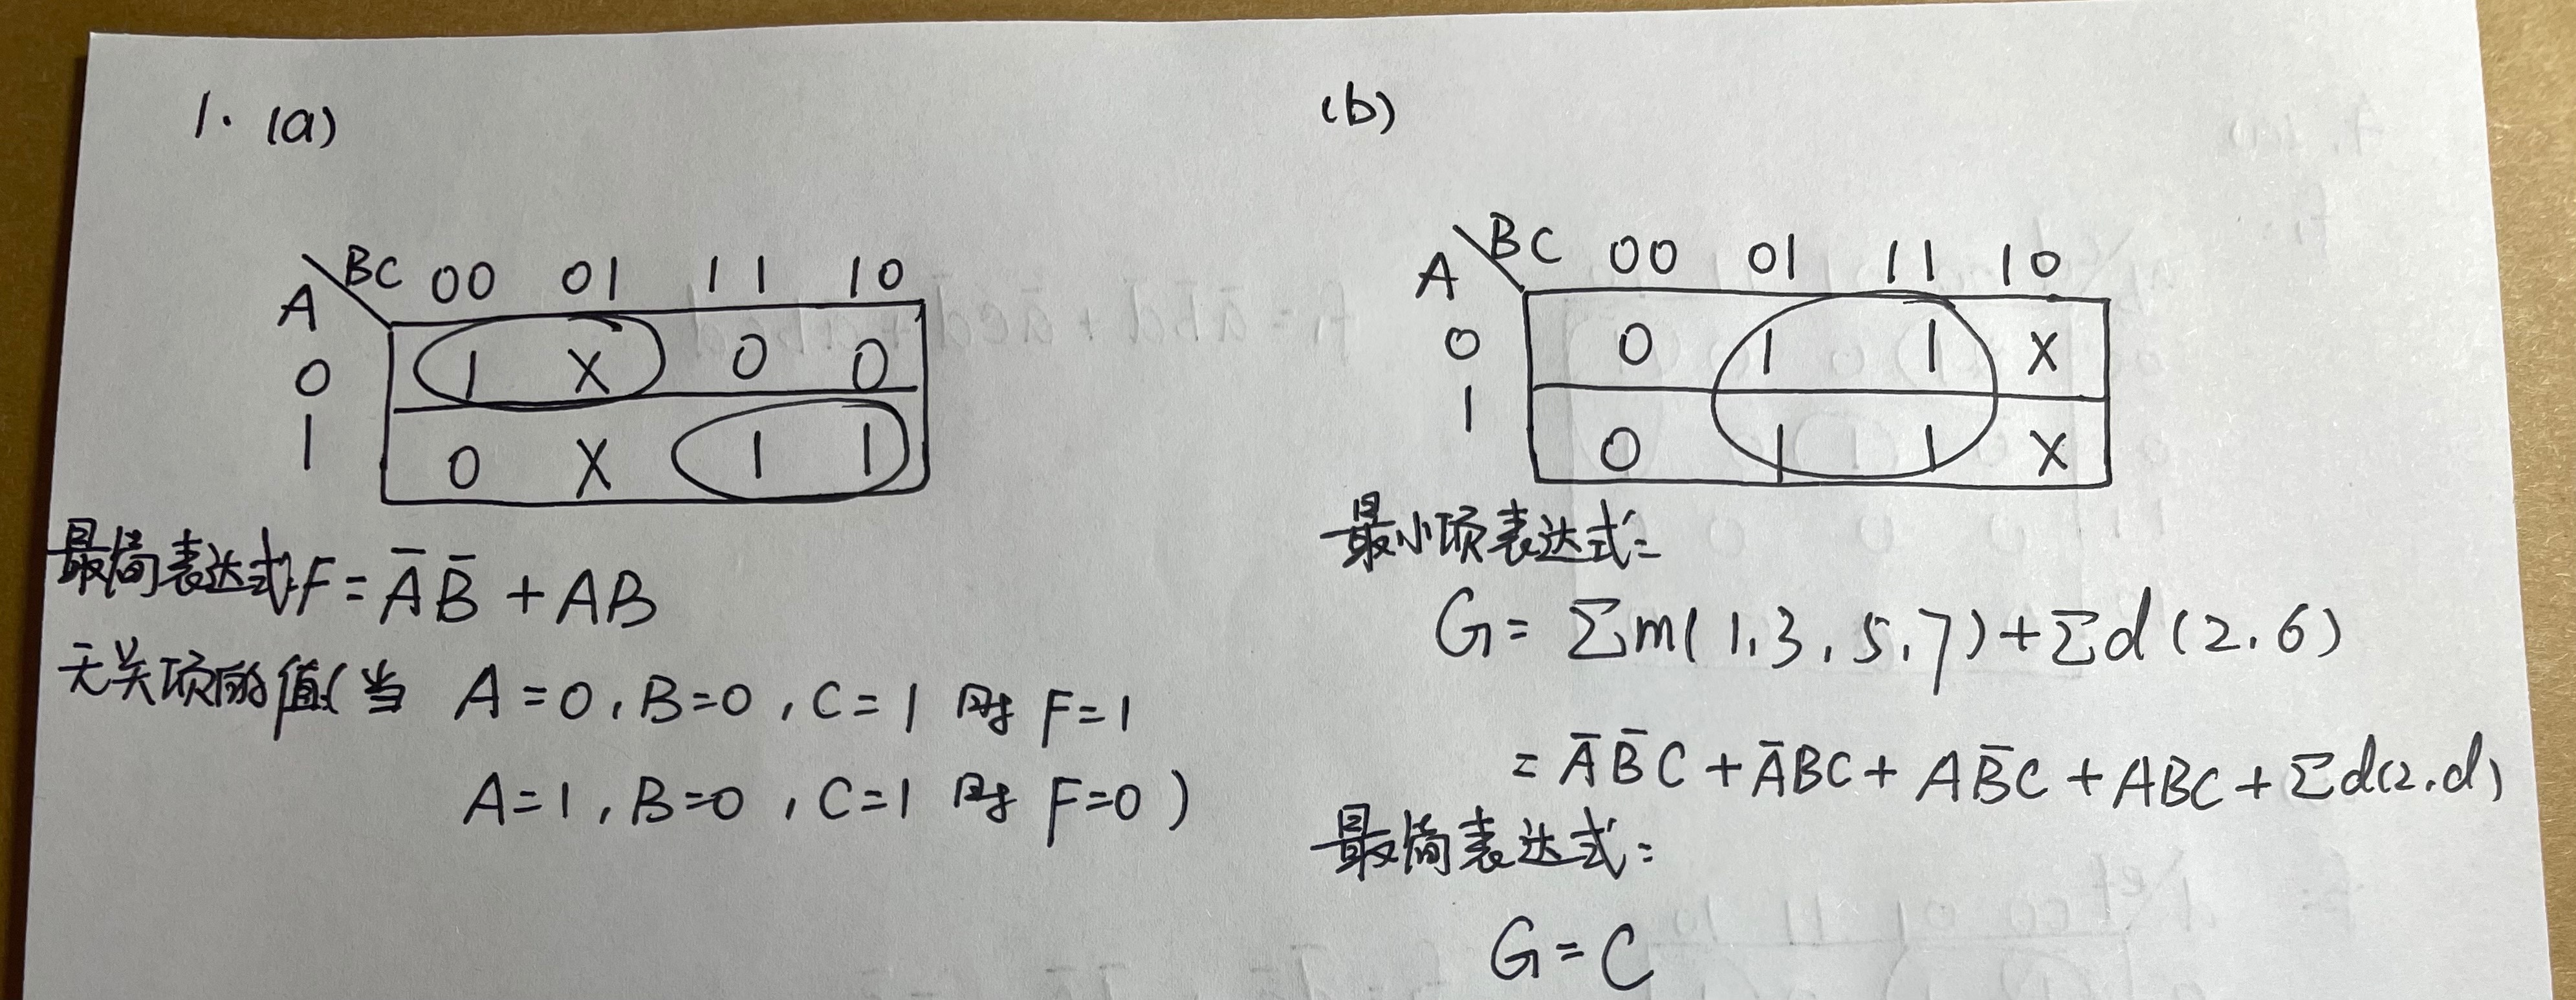 1. (a)
BC 00 01 11 10
A
0 1 X 0 0
1 0 X 1 1
最简表达式F = A̅ B̅ + AB
无关项的值(当 A=0, B=0, C=1 时 F=1
A=1, B=0, C=1 时 F=0 )
(b)
BC 00 01 11 10
A
0 0 1 1 X
1 0 1 1 X
最小项表达式:
G = Σm( 1, 3, 5, 7) + Σd (2, 6)
= A̅ B̅ C + A̅BC + AB̅C + ABC + Σd(2,d)
最简表达式:
G = C